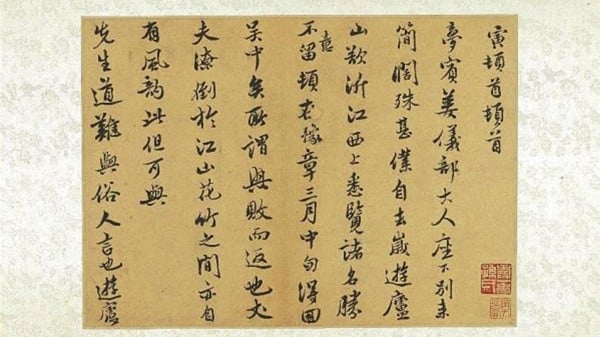 寅頓首頓首
夢賓姜儀部大人座下別來
簡闊殊甚僕自去歲遊廬
山欲泝江西上悉覽諸名勝
不意留頓於豫章三月中旬得回
吳中矣所謂興敗而返也丈
夫潦倒於江山花竹之間亦自
有風韵此但可與
先生道難與俗人言也遊廬